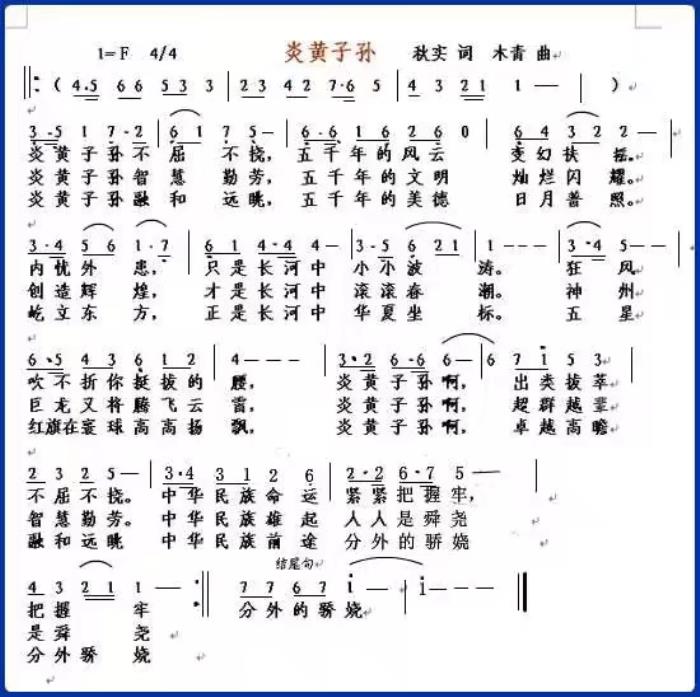 1=F 4/4 炎黄子孙 秋实 词 木青 曲
( 4·5 6 6 5 3 3 | 2 3 4 2 7·6 5 | 4 3 2 1 1 — )
3·5 1 7·2 | 6 1 5— | 6·6 1·6 2 6 0 | 6 4 3 2 2—
炎黄子孙不屈 不挠，五千年的风云 变幻扶 摇。
炎黄子孙智慧 勤劳，五千年的文明 灿烂闪 耀。
炎黄子孙融和 远眺，五千年的美德 日月普 照。
3·4 5 6 1·7 | 6 1 4·4 4— | 3·5 2 6 2 1 | 1— 3·4 5—
内忧外 患，只是长河中 小小波 涛。狂 风
创造辉 煌，才是长河中 滚滚春 潮。神 州
屹立东 方，正是长河中 华夏坐 标。五 星
6·5 4 3 6 1 2 | 4— 3·2 6·6 | 6— 6 7 1 5 3
吹不折你挺拔的 腰，炎黄子孙啊，出类拔萃
巨龙又将腾飞云 雷，炎黄子孙啊，超群越辈
红旗在寰球高高扬 飘，炎黄子孙啊，卓越高瞻
2 3 2 2 5— | 3·4 3 1 2 6 | 2·2 6·7 5—
不屈不挠。中华民族命运 紧紧把握牢，
智慧勤劳。中华民族雄起 人人是舜尧
融和远眺 中华民族前途 分外的骄娆
结尾句
4 3 2 1 1— :‖ 7 7 6 7 i — | i — — — ‖
把握 牢 分外的骄娆
是舜 尧
分外骄 娆